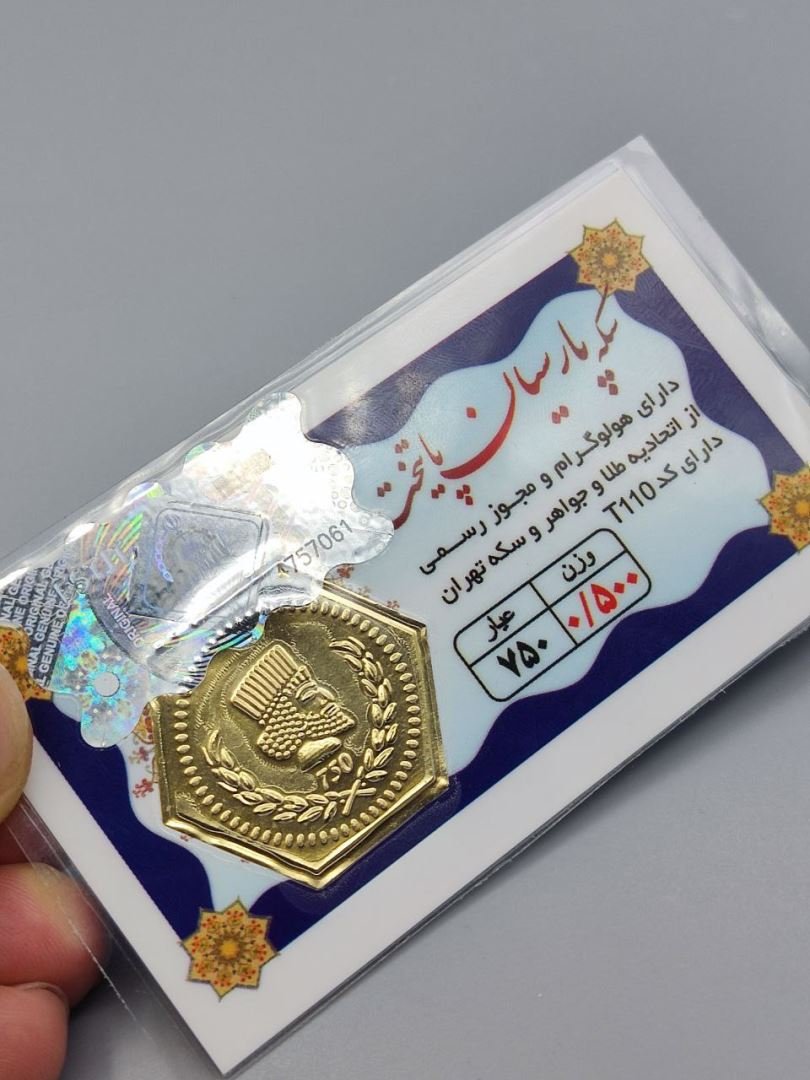 سکه پارسیان پایتخت
دارای هولوگرام و مجوز رسمی
از اتحادیه طلا و جواهر و سکه تهران
دارای کد T110
وزن عیار
۰/۵۰۰ ۷۵۰
A757061
ORIGINAL
GENUINE ORIGINAL
750